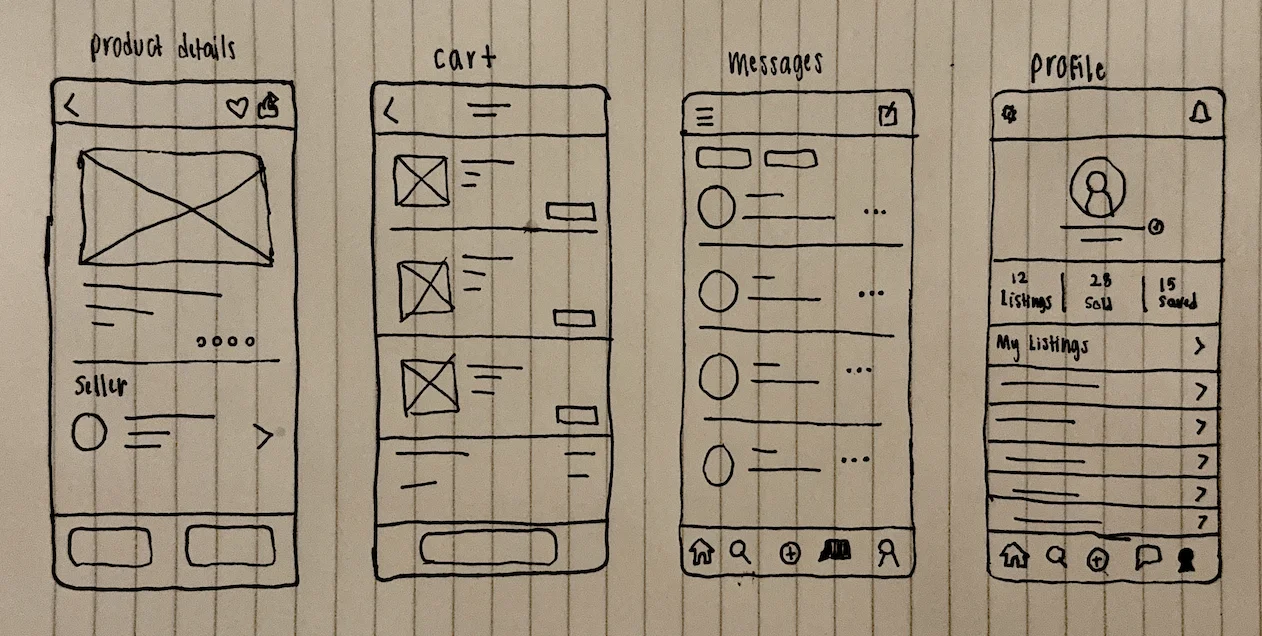 product details
cart
messages
profile
Seller
12
Listings
28
Sold
15
Saved
My Listings